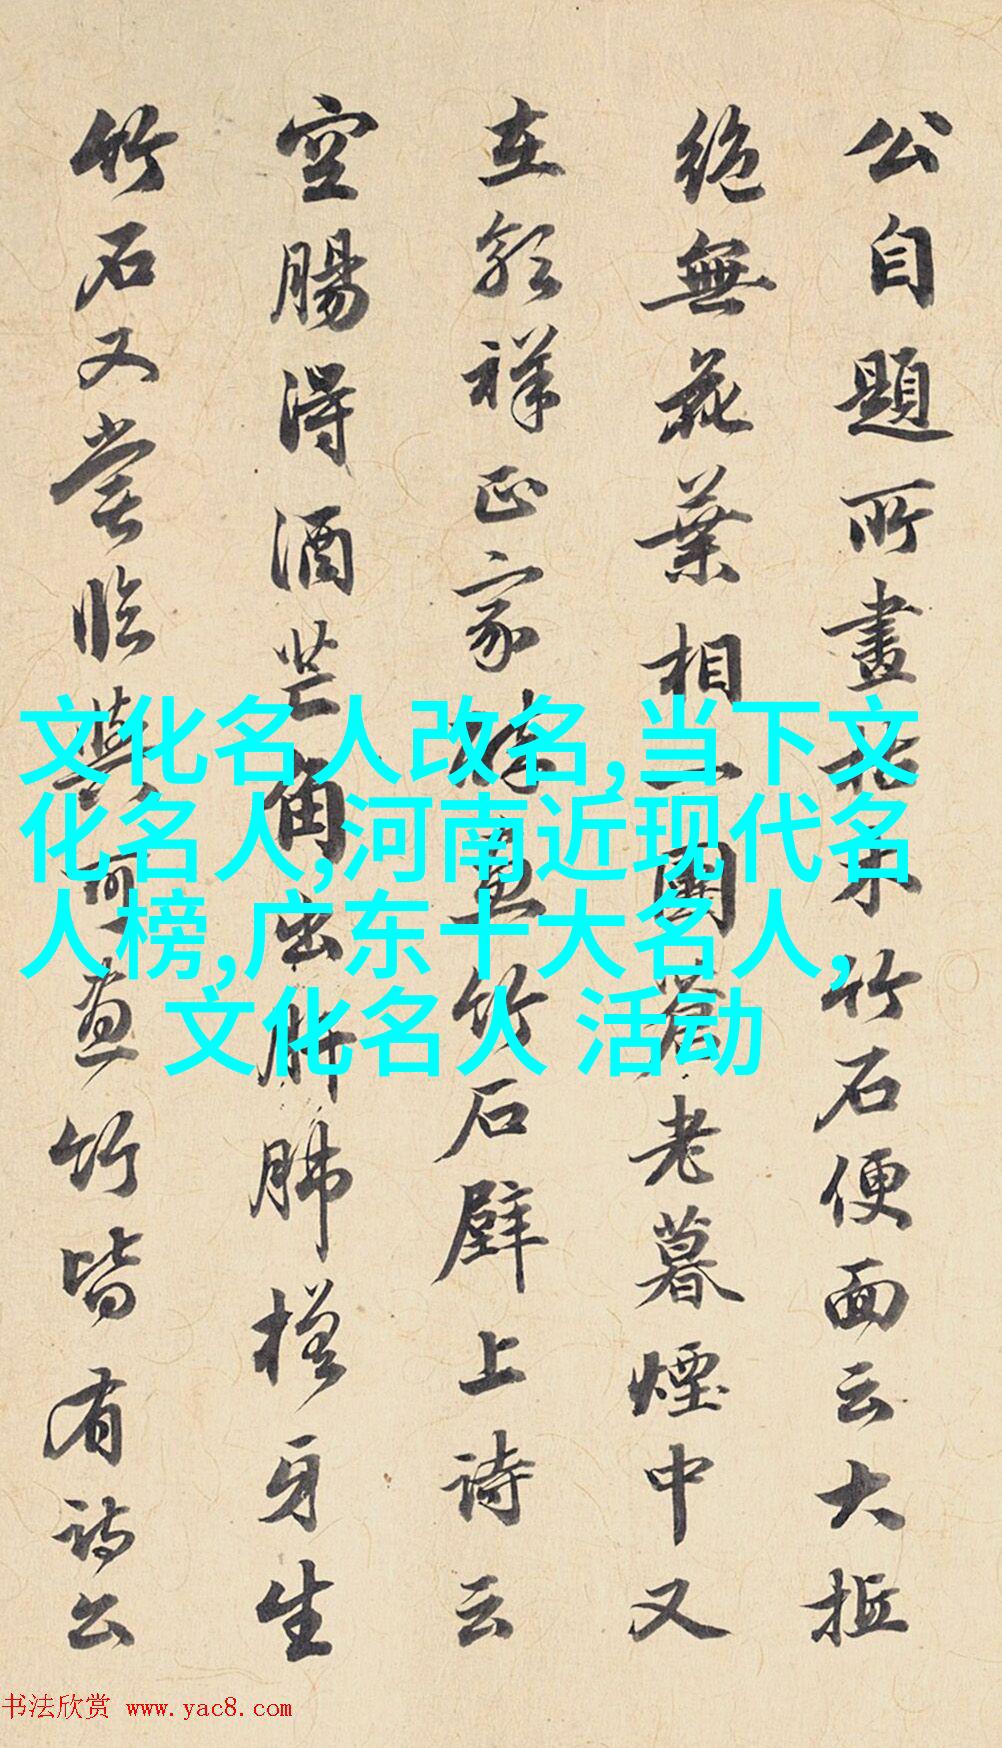 公自題所畫老木竹石便面云大抵
絶無花葉相一團蒼老暮煙中又
在郭祥正家醉畫竹石壁上詩云
空腸得酒芒角出肝肺槎牙生
竹石又嘗臨與可畫竹皆有詩公
文化名人改名,当下文
化名人,河南近现代名
人榜,广东十大名人,
文化名人 活动
书法欣赏 www.yac8.com